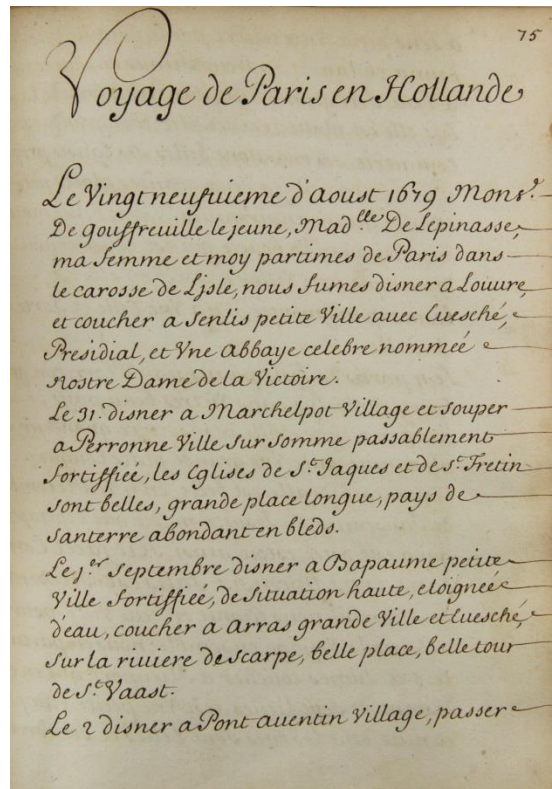 75
Voyage de Paris en Hollande
Le Vingt neufuieme d'Aoust 1679 Monsr.
De gouffreuille le jeune, Madlle De Lepinasse,
ma femme et moy partimes de Paris dans
le carosse de Ljsle, nous fumes disner a Louure,
et coucher a Senlis petite Ville avec Euesché,
Presidial, et Vne Abbaye celebre nommeé
Nostre Dame de la Victoire.
Le 31. disner a Marchelpot Village et souper
a Perronne Ville sur Somme passablement
fortiffieé, les Eglises de St. Jaques et de St. Fretin
sont belles, grande place longue, pays de
Santerre abondant en bleds.
Le 1er Septembre disner a Bapaume petite
Ville fortiffieé, de situation haute, eloigneé
d'eau, coucher a Arras grande Ville et Euesché,
sur la riuiere de scarpe, belle place, belle tour
de St. Vaast.
Le 2 disner a Pont auentin Village, passer